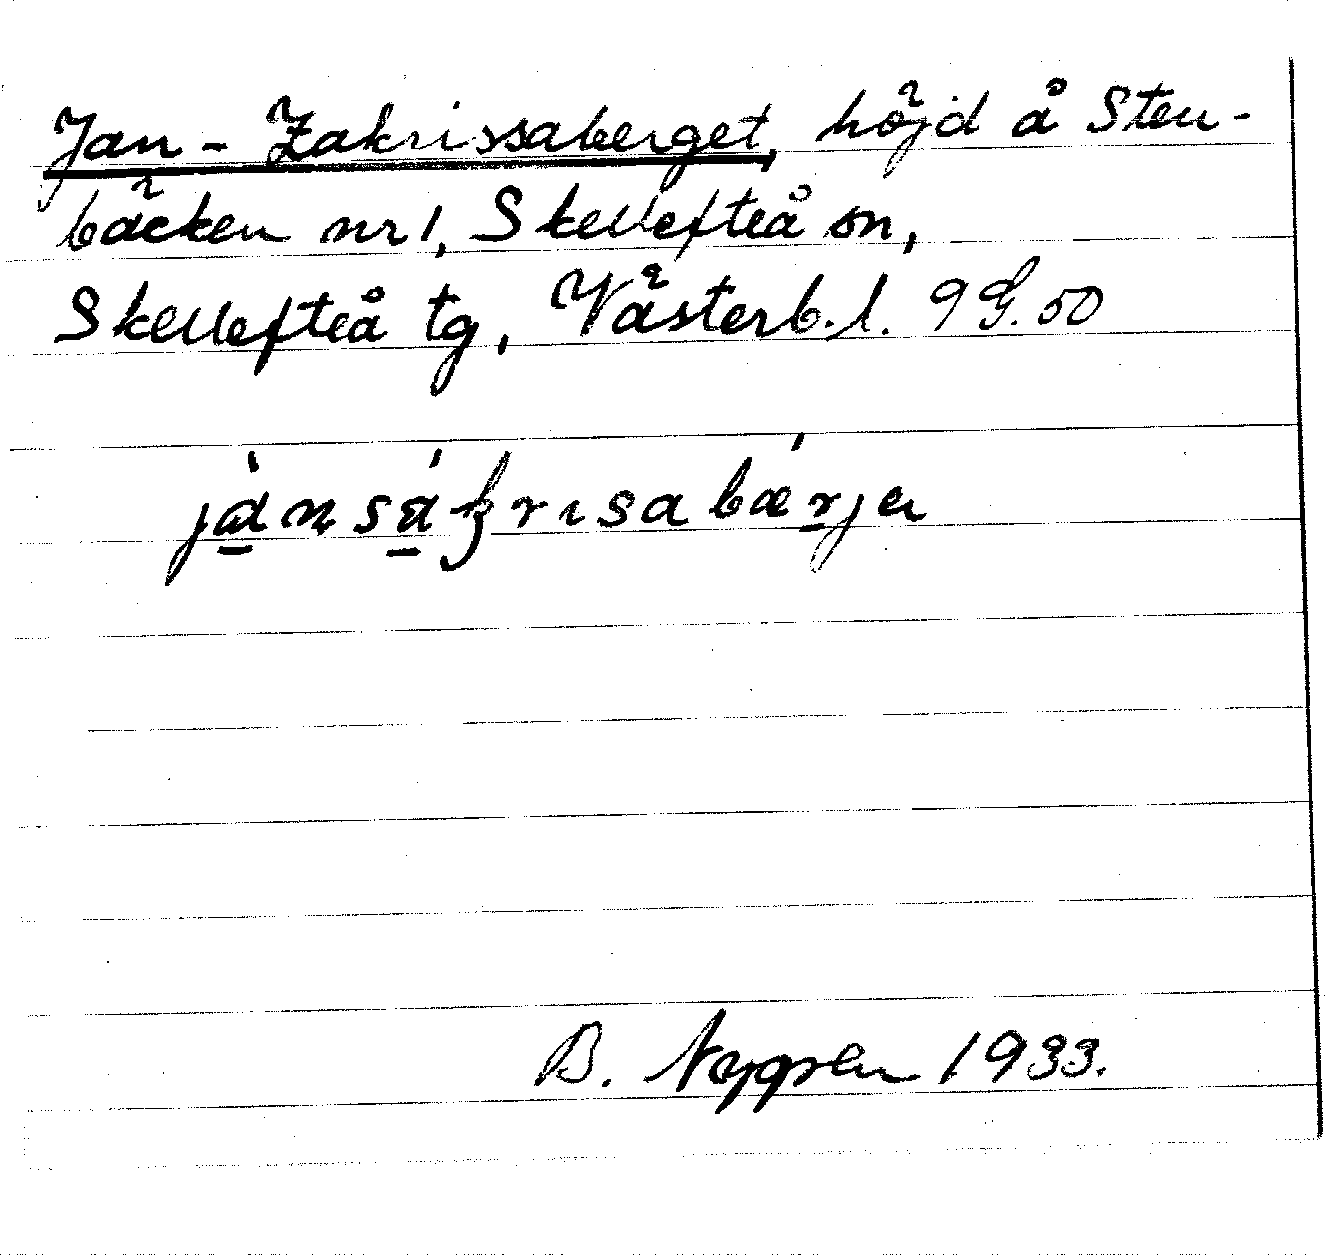 Jan-Zakrissaberget, höjd å Sten-
bäcken nr 1, Skellefteå sn,
Skellefteå tg, Västerb. l. 9 G. 50
jànsákrisabárja
B. Nygren 1933.